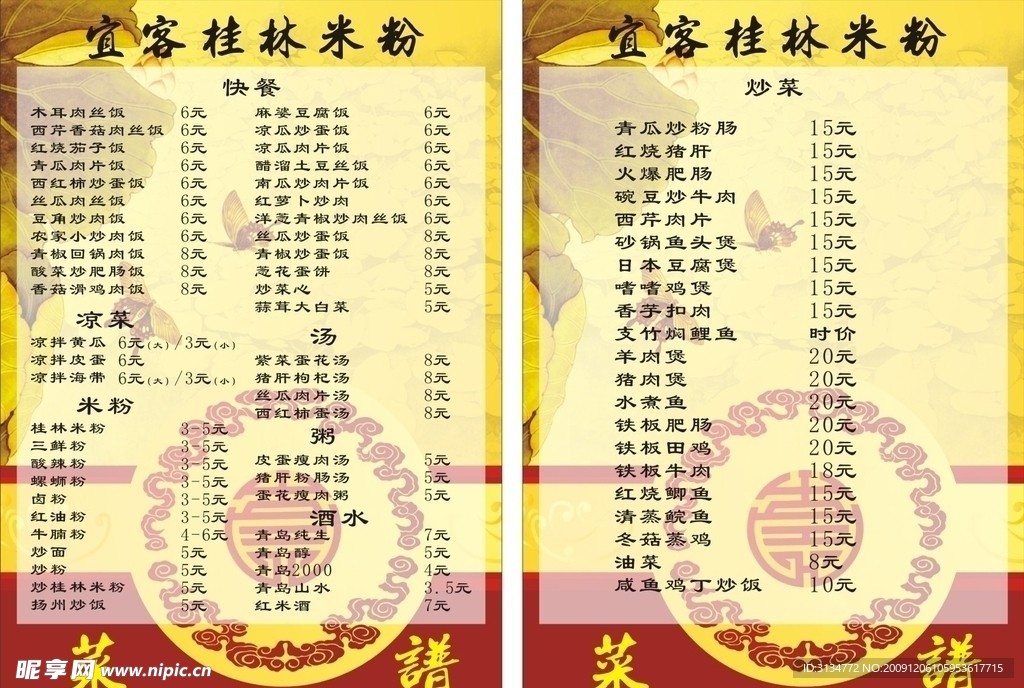 宜客桂林米粉
快餐
木耳肉丝饭 6元
西芹香菇肉丝饭 6元
红烧茄子饭 6元
青瓜肉片饭 6元
西红柿炒蛋饭 6元
丝瓜肉丝饭 6元
豆角炒肉饭 6元
农家小炒肉饭 6元
青椒回锅肉饭 8元
酸菜炒肥肠饭 8元
香菇滑鸡肉饭 8元
凉菜
凉拌黄瓜 6元(大)/3元(小)
凉拌皮蛋 6元
凉拌海带 6元(大)/3元(小)
米粉
桂林米粉 3-5元
三鲜粉 3-5元
酸辣粉 3-5元
螺蛳粉 3-5元
卤粉 3-5元
红油粉 3-5元
牛腩粉 4-6元
炒面 5元
炒粉 5元
炒桂林米粉 5元
扬州炒饭 5元
麻婆豆腐饭 6元
凉瓜炒蛋饭 6元
凉瓜肉片饭 6元
醋溜土豆丝饭 6元
南瓜炒肉片饭 6元
红萝卜炒肉 6元
洋葱青椒炒肉丝饭 6元
丝瓜炒蛋饭 8元
青椒炒蛋饭 8元
葱花蛋饼 8元
炒菜心 5元
蒜茸大白菜 5元
汤
紫菜蛋花汤 8元
猪肝枸杞汤 8元
丝瓜肉片汤 8元
西红柿蛋汤 8元
粥
皮蛋瘦肉汤 5元
猪肝粉肠汤 5元
蛋花瘦肉粥 5元
酒水
青岛纯生 7元
青岛醇 5元
青岛2000 4元
青岛山水 3.5元
红米酒 7元
菜 譜
昵享网 www.nipic.cn
宜客桂林米粉
炒菜
青瓜炒粉肠 15元
红烧猪肝 15元
火爆肥肠 15元
碗豆炒牛肉 15元
西芹肉片 15元
砂锅鱼头煲 15元
日本豆腐煲 15元
嗜嗜鸡煲 15元
香芋扣肉 15元
支竹焖鲤鱼 时价
羊肉煲 20元
猪肉煲 20元
水煮鱼 20元
铁板肥肠 20元
铁板田鸡 20元
铁板牛肉 18元
红烧鲫鱼 15元
清蒸鲩鱼 15元
冬菇蒸鸡 15元
油菜 8元
咸鱼鸡丁炒饭 10元
菜 譜
ID:3134772 NO:20091206105953617715